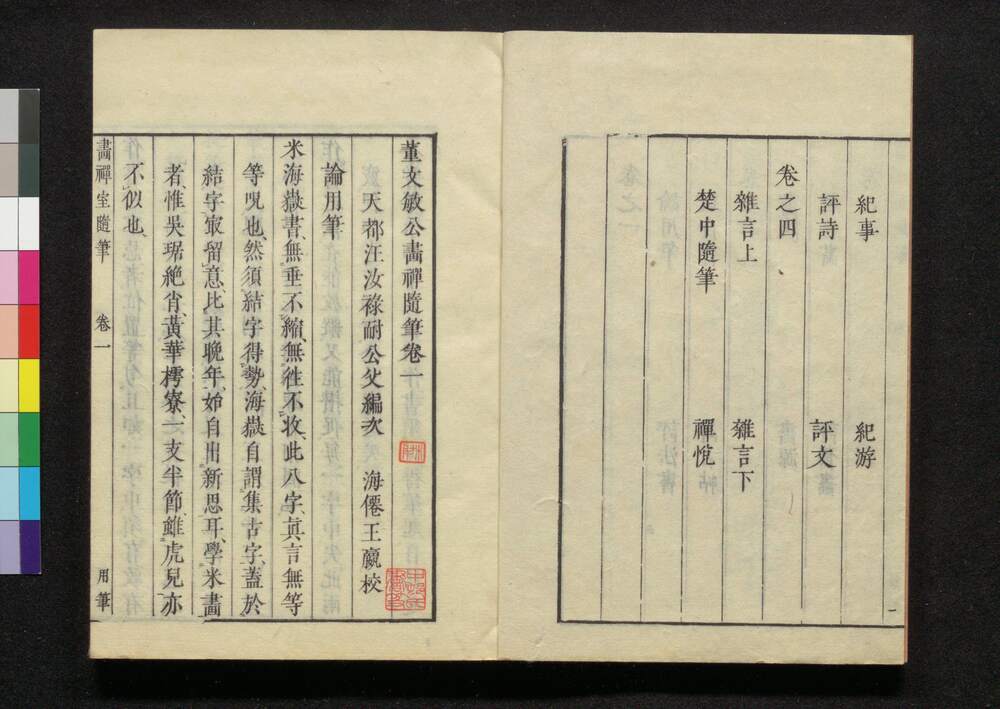 紀事 紀游
評詩 評文
卷之四
雜言上 雜言下
楚中隨筆 禪悅
一
董文敏公畵禪隨筆卷一
天都汪汝祿耐公父編次 海僊王
校
論用筆
米海嶽書、無垂不縮、無徃不收、此八字、眞言無等
等呪也、然須結字得勢、海嶽自謂集古字、蓋於
結字㝡留意、比其晚年、始自出新思耳、學米畵
者、惟吳琚絶肖、黃華樗寮、一支半節、雖虎兒亦
不似也、
畵禪室隨筆 卷一 用筆